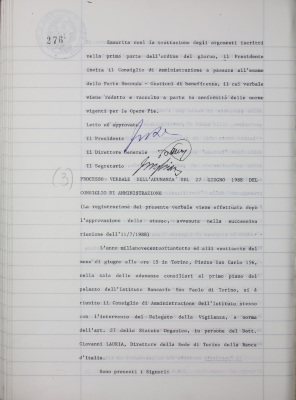 276
Esaurita così la trattazione degli argomenti iscritti
nella prima parte dell'ordine del giorno, il Presidente
invita il Consiglio di Amministrazione a passare all'esame
della Parte Seconda - Gestioni di beneficenza, il cui verbale
viene redatto e raccolto a parte in conformità delle norme
vigenti per le Opere Pie.
Letto ed approvato.
Il Presidente
Il Direttore Generale
Il Segretario
3
PROCESSO VERBALE DELL'ADUNANZA DEL 27 GIUGNO 1988 DEL
CONSIGLIO DI AMMINISTRAZIONE
(La registrazione del presente verbale viene effettuata dopo
l'approvazione dello stesso, avvenuta nella successiva
riunione dell'11/7/1988)
L'anno millenovecentoottantotto ed alli ventisette del
mese di giugno alle ore 15 in Torino, Piazza San Carlo 156,
nella sala delle adunanze consiliari al primo piano del
palazzo dell'Istituto Bancario San Paolo di Torino, si è
riunito il Consiglio di Amministrazione dell'Istituto stesso
con l'intervento del Delegato della Vigilanza, a norma
dell'art. 23 dello Statuto Organico, in persona del Dott.
Giovanni LAURIA, Direttore della Sede di Torino della Banca
d'Italia.
Sono presenti i Signori: